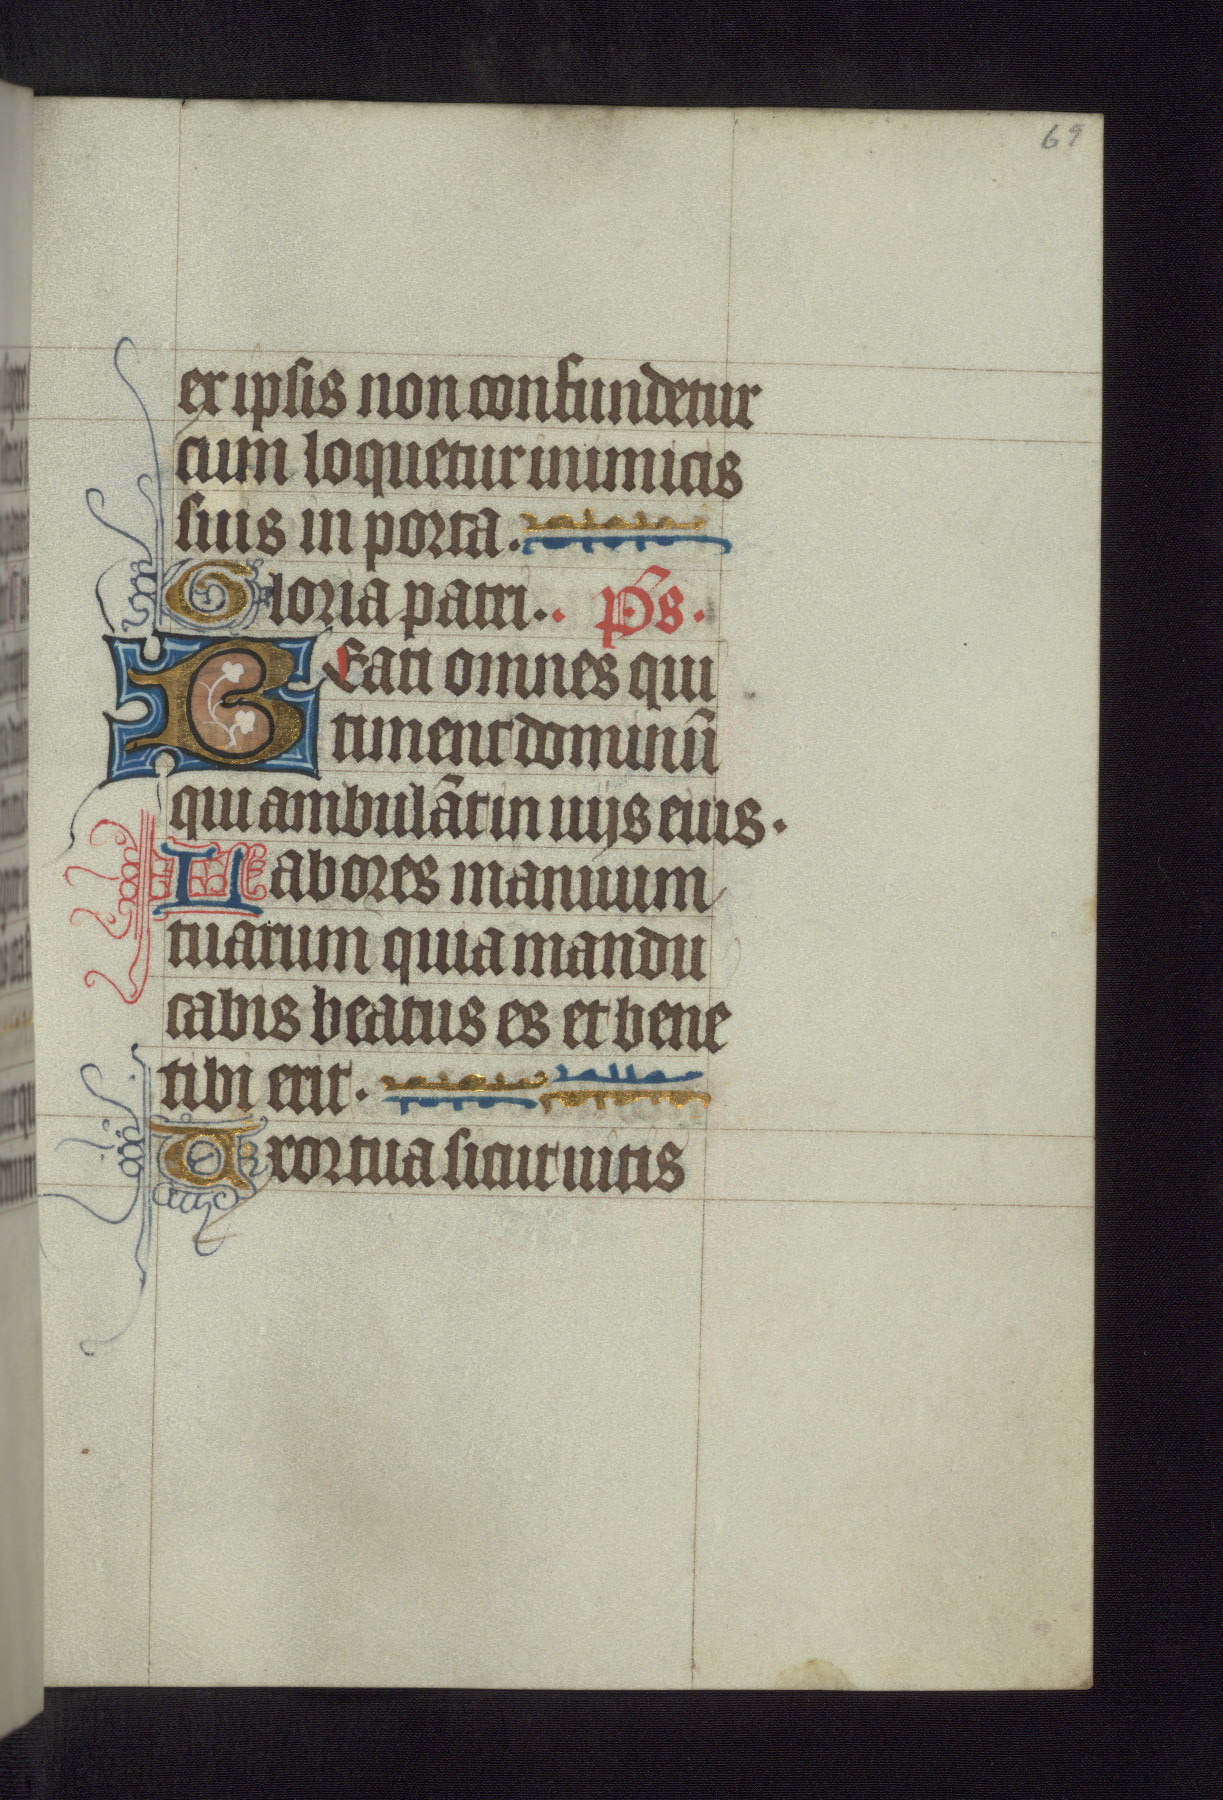 69
ex ipsis non confundetur
cum loquetur inimicis
suis in porta.
Gloria patri. p̄s.
Beati omnes qui
timent dominū
qui ambulāt in uijs eius.
Labores manuum
tuarum quia mandu
cabis beatus es et bene
tibi erit.
Uxor tua sicut uitis